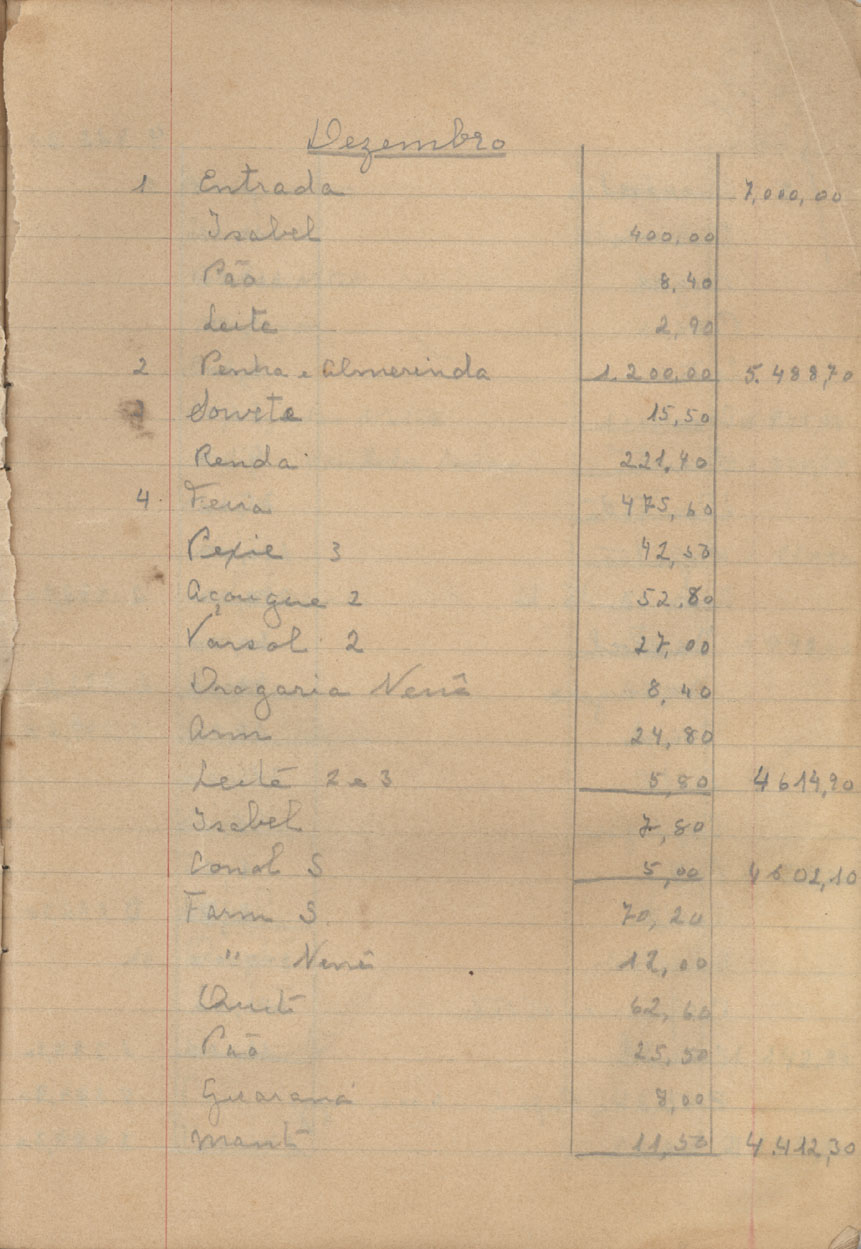 Dezembro
1 Entrada 7,000,00
Isabel 400,00
Pão 8,40
Leite 2,90
2 Penha e Almerinda 1.200,00 5.488,70
Sorvete 15,50
Renda 221,40
4 Feira 475,60
Pexie 3 42,50
Açougue 2 52,80
Varsol 2 27,00
Drogaria Nenê 8,40
Arm 24,80
Leite 2 e 3 5,80 4614,90
Isabel 7,80
S 5,00 4602,10
Farm S 70,20
" Nenê 12,00
62,60
Pão 25,50
Guaraná 8,00
Mant 11,50 4.412,30